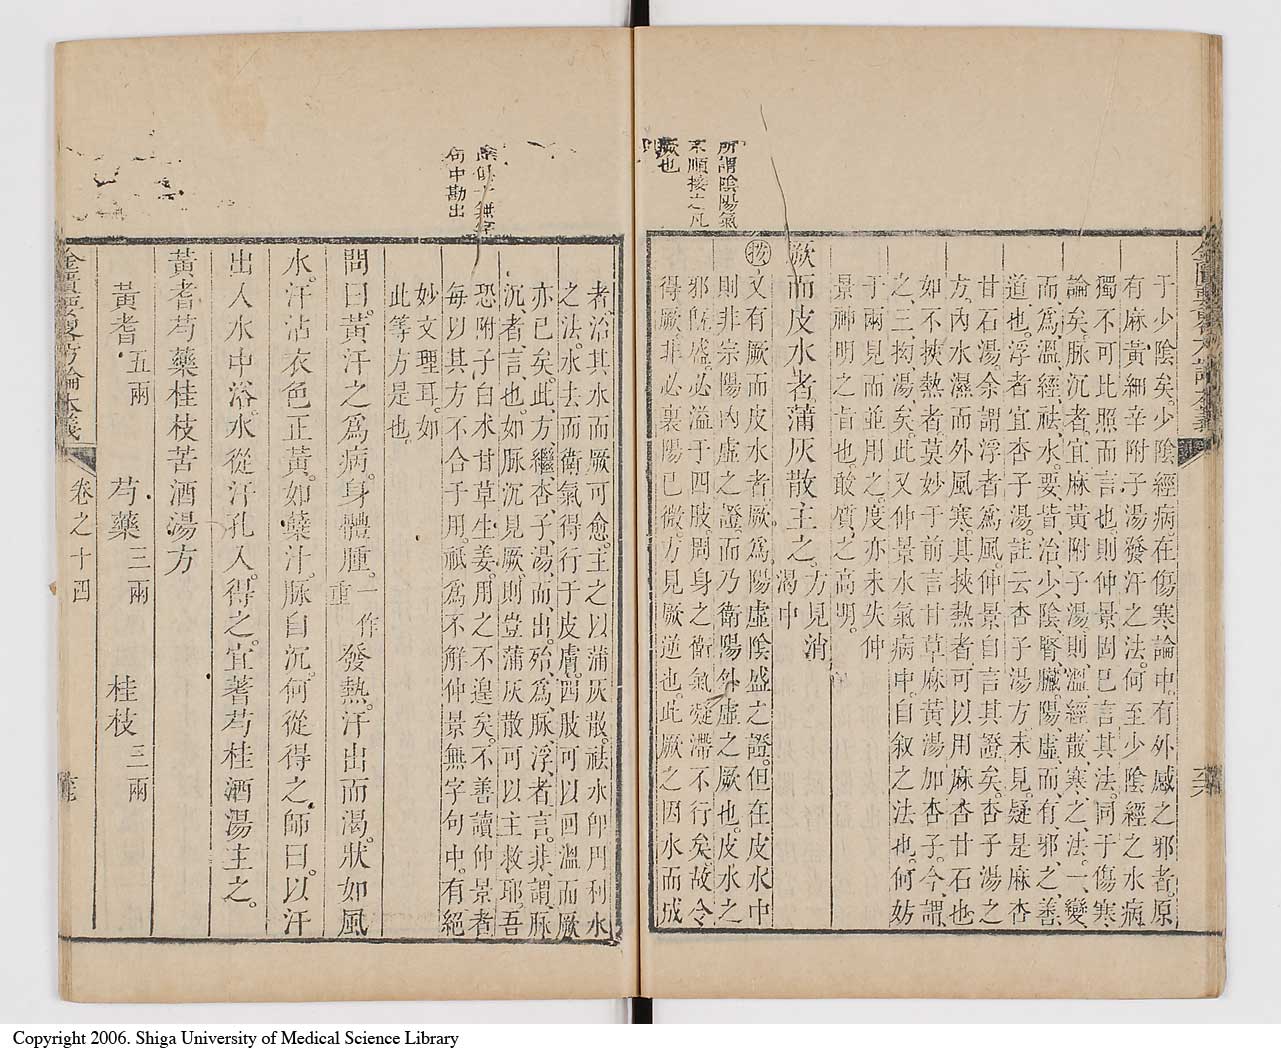 于少陰矣。少陰經病。在傷寒論中。有外感之邪者。原
有麻黃細辛附子湯發汗之法。何至少陰經之水病
獨不可比照而言也。則仲景固已言其法。同于傷寒
論矣。脉沉者。宜麻黃附子湯。則溫經散寒之法。一變
而爲溫經祛水。要皆治少陰腎臟。陽虛而有邪之善
道也。浮者宜杏子湯。註云杏子湯方未見。疑是麻杏
甘石湯。余謂浮者爲風。仲景自言其證矣。杏子湯之
方。內水濕而外風寒。其挾熱者可以用麻杏甘石也
如不挾熱者。莫妙于前言甘草麻黃湯加杏子。今謂
之三拗湯矣。此又仲景水氣病中。自叙之法也。何妨
于兩見而並用之。度亦未失仲
景神明之旨也。敢質之高明。
厥而皮水者。蒲灰散主之。方見消渴中
按又有厥而皮水者。厥爲陽虛陰盛之證。但在皮水中
則非宗陽內虛之證。而乃衛陽外虛之厥也。皮水之
邪旣盛。必溢于四肢。周身之衛氣凝滯不行矣。故令
得厥。非必裏陽已微。方見厥逆也。此厥之因水而成
所謂陰陽氣
不順接之凡
厥也
者。治其水而厥可愈。主之以蒲灰散。祛水卽門利水
之法。水去而衛氣得行于皮膚。四肢可以回溫而厥
亦已矣。此方繼杏子湯而出。殆爲脉浮者言。非謂脉
沉者言也。如脉沉見厥。則豈蒲灰散可以主救耶。吾
恐附子白朮甘草生姜。用之不遑矣。不善讀仲景者
每以其方不合于用。祇爲不解仲景無字句中。有絕
妙文理耳。如
此等方是也
無字
句中勘出
問曰。黃汗之爲病。身體腫。一作重發熱。汗出而渴。狀如風
水。汗沾衣。色正黃。如蘗汁。脉自沉。何從得之。師曰。以汗
出入水中浴。水從汗孔入。得之。宜蓍芍桂酒湯主之。
黃耆芍藥桂枝苦酒湯方
黃耆五兩 芍藥三兩 桂枝三兩
金匱要略方論本義 卷之十四